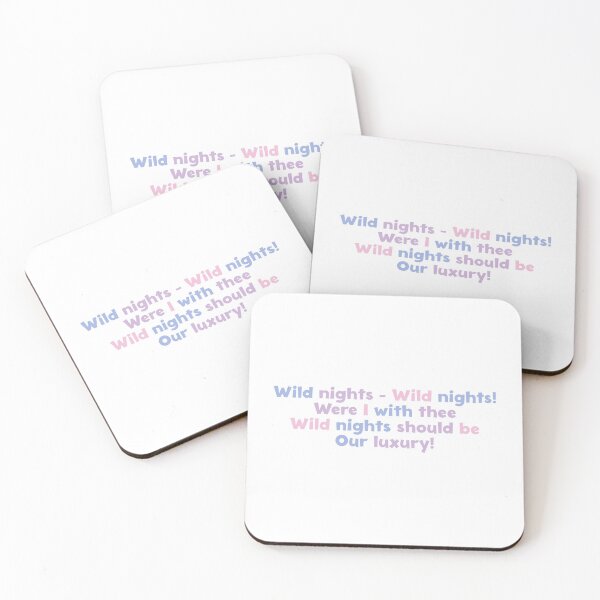 Wild nights - Wild
Were I with thee
be
Wild nights - Wild nights!
Were I with thee
Wild nights should be
Our luxury!
Wild nights - Wild nights!
Were I with thee
Wild nights should be
Our luxury!
Wild nights - Wild nights!
Were I with thee
Wild nights should be
Our luxury!